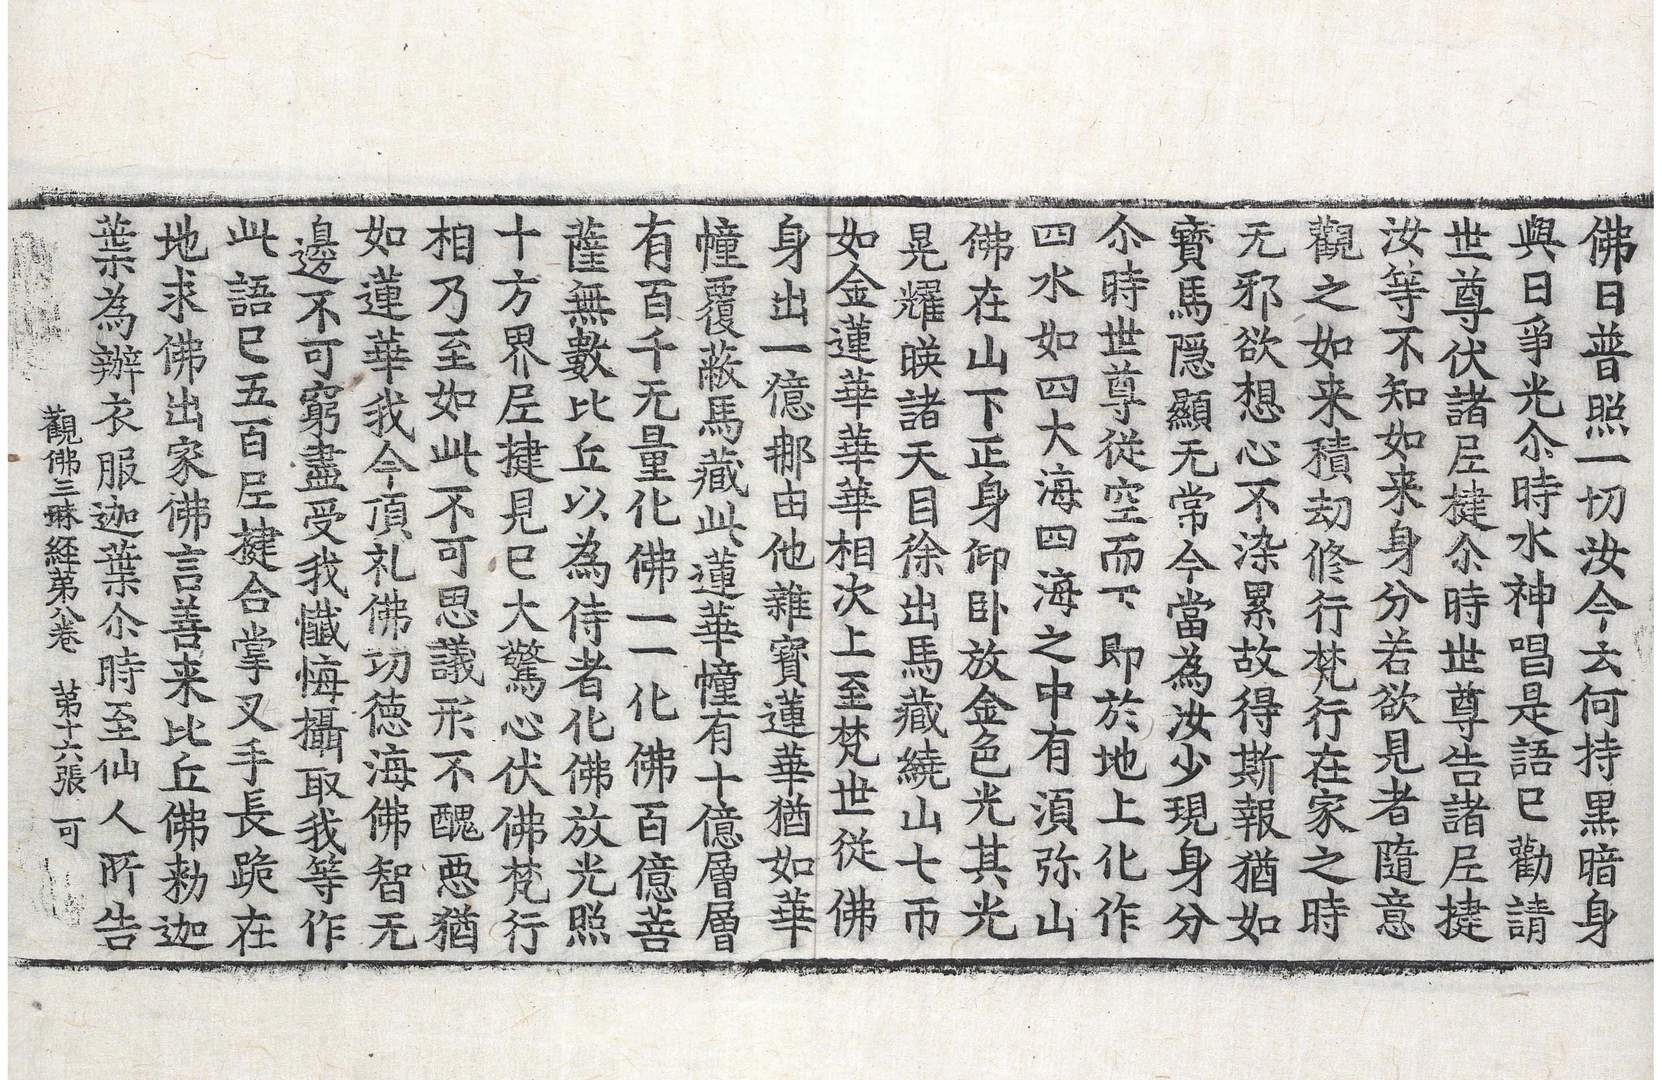 佛日普照一切汝今云何持黑暗身
與日爭光尒時水神唱是語已勸請
世尊伏諸𡰱揵尒時世尊告諸𡰱揵
汝等不知如来身分若欲見者隨意
觀之如来積劫修行梵行在家之時
无邪欲想心不染累故得斯報猶如
寶馬隠顯无常今當為汝少現身分
尒時世尊從空而下即於地上化作
四水如四大海四海之中有湏弥山
佛在山下正身仰卧放金色光其光
晃耀暎諸天目徐出馬藏繞山七帀
如金蓮華華華相次上至梵世從佛
身出一億𨙻由他雜寶蓮華猶如華
幢覆蔽馬藏此蓮華幢有十億層層
有百千无量化佛一一化佛百億菩
薩無數比丘以為侍者化佛放光照
十方界𡰱揵見已大驚心伏佛梵行
相乃至如此不可思議形不醜惡猶
如蓮華我今頂礼佛功德海佛智无
邊不可窮盡受我懺悔攝取我等作
此語已五百𡰱揵合掌叉手長跪在
地求佛出家佛言善来比丘佛勑迦
葉為辦衣服迦葉尒時至仙人所告
觀佛三昧経第八卷 第十六張 可